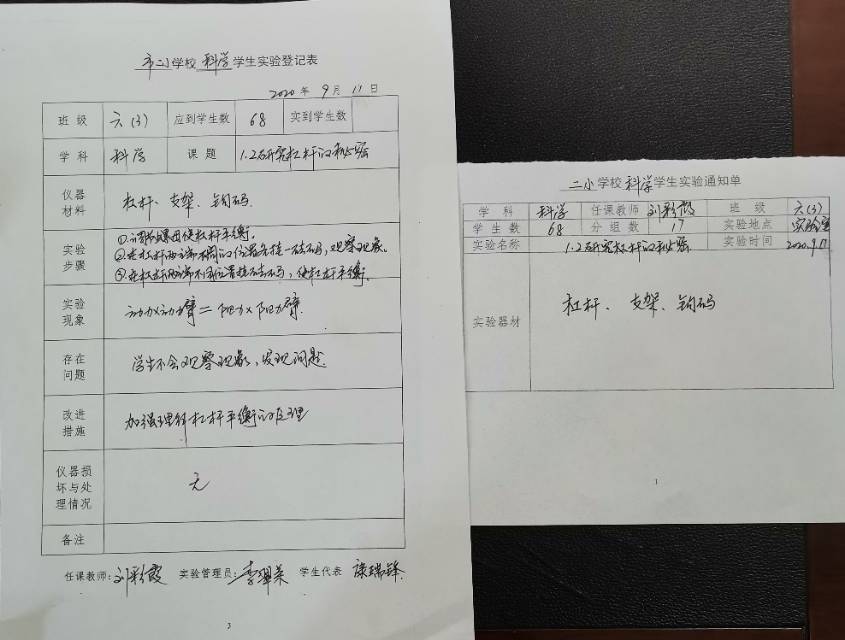 市二小学校科学学生实验登记表
2020年9月11日
班级 六(3) 应到学生数 68 实到学生数
学科 科学 课题 1.2研究杠杆的秘密
仪器材料 杠杆、支架、钩码
实验步骤 ①调节螺母使杠杆平衡。
②在杠杆两端不同的位置先挂一些钩码,观察现象。
③在杠杆两端不同位置挂钩码,使杠杆平衡。
实验现象 动力×动力臂=阻力×阻力臂.
存在问题 学生不会观察现象,发现问题
改进措施 加强理解杠杆平衡的原理
仪器损坏与处理情况 无
备注
任课教师:刘彩霞 实验管理员:李翠英 学生代表 康瑞锋
3
二小学校科学学生实验通知单
学科 科学 任课教师 刘彩霞 班级 六(3)
学生数 68 分组数 17 实验地点 实验室
实验名称 1.2研究杠杆的秘密 实验时间 2020.9.11
实验器材 杠杆、支架、钩码
1